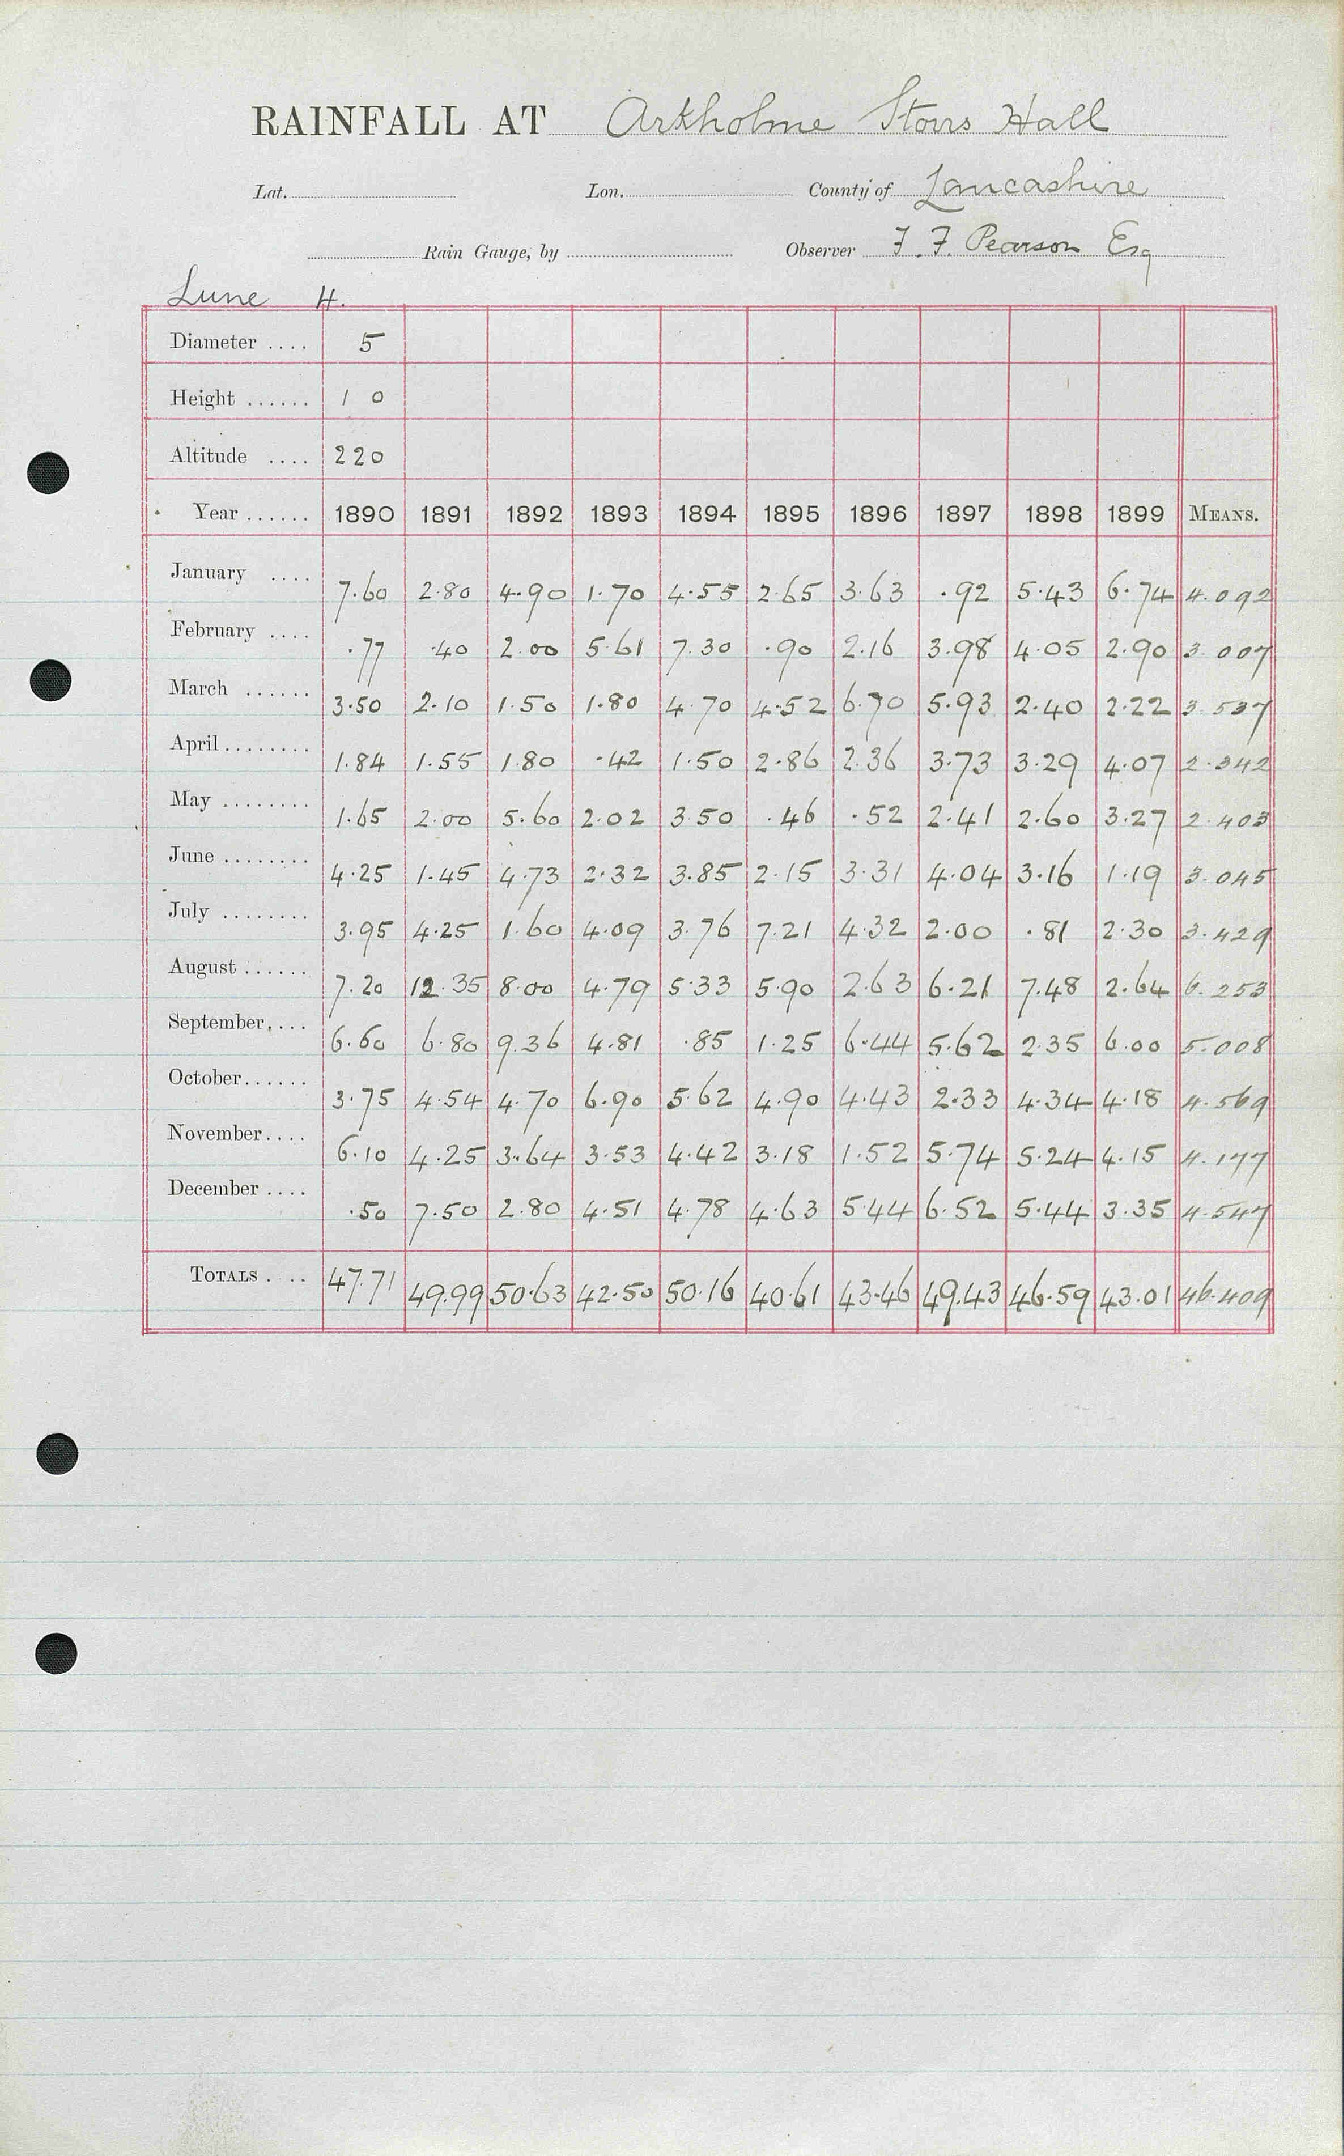 RAINFALL AT Arkholme Storrs Hall
Lat. Lon. County of Lancashire
Rain Gauge, by Observer F. F. Pearson Esq
Lune 4.
Diameter .... 5
Height ...... 1 0
Altitude .... 220
Year ...... 1890 1891 1892 1893 1894 1895 1896 1897 1898 1899 MEANS.
January .... 7.60 2.80 4.90 1.70 4.55 2.65 3.63 .92 5.43 6.74 4.092
February .... .77 .40 2.00 5.61 7.30 .90 2.16 3.98 4.05 2.90 3.007
March ...... 3.50 2.10 1.50 1.80 4.70 4.52 6.70 5.93 2.40 2.22 3.537
April ........ 1.84 1.55 1.80 .42 1.50 2.86 2.36 3.73 3.29 4.07 2.342
May ........ 1.65 2.00 5.60 2.02 3.50 .46 .52 2.41 2.60 3.27 2.403
June ........ 4.25 1.45 4.73 2.32 3.85 2.15 3.31 4.04 3.16 1.19 3.045
July ........ 3.95 4.25 1.60 4.09 3.76 7.21 4.32 2.00 .81 2.30 3.429
August ...... 7.20 12.35 8.00 4.79 5.33 5.90 2.63 6.21 7.48 2.64 6.253
September.... 6.60 6.80 9.36 4.81 .85 1.25 6.44 5.62 2.35 6.00 5.008
October...... 3.75 4.54 4.70 6.90 5.62 4.90 4.43 2.33 4.34 4.18 4.569
November.... 6.10 4.25 3.64 3.53 4.42 3.18 1.52 5.74 5.24 4.15 4.177
December .... .50 7.50 2.80 4.51 4.78 4.63 5.44 6.52 5.44 3.35 4.547
TOTALS . .. 47.71 49.99 50.63 42.50 50.16 40.61 43.46 49.43 46.59 43.01 46.409